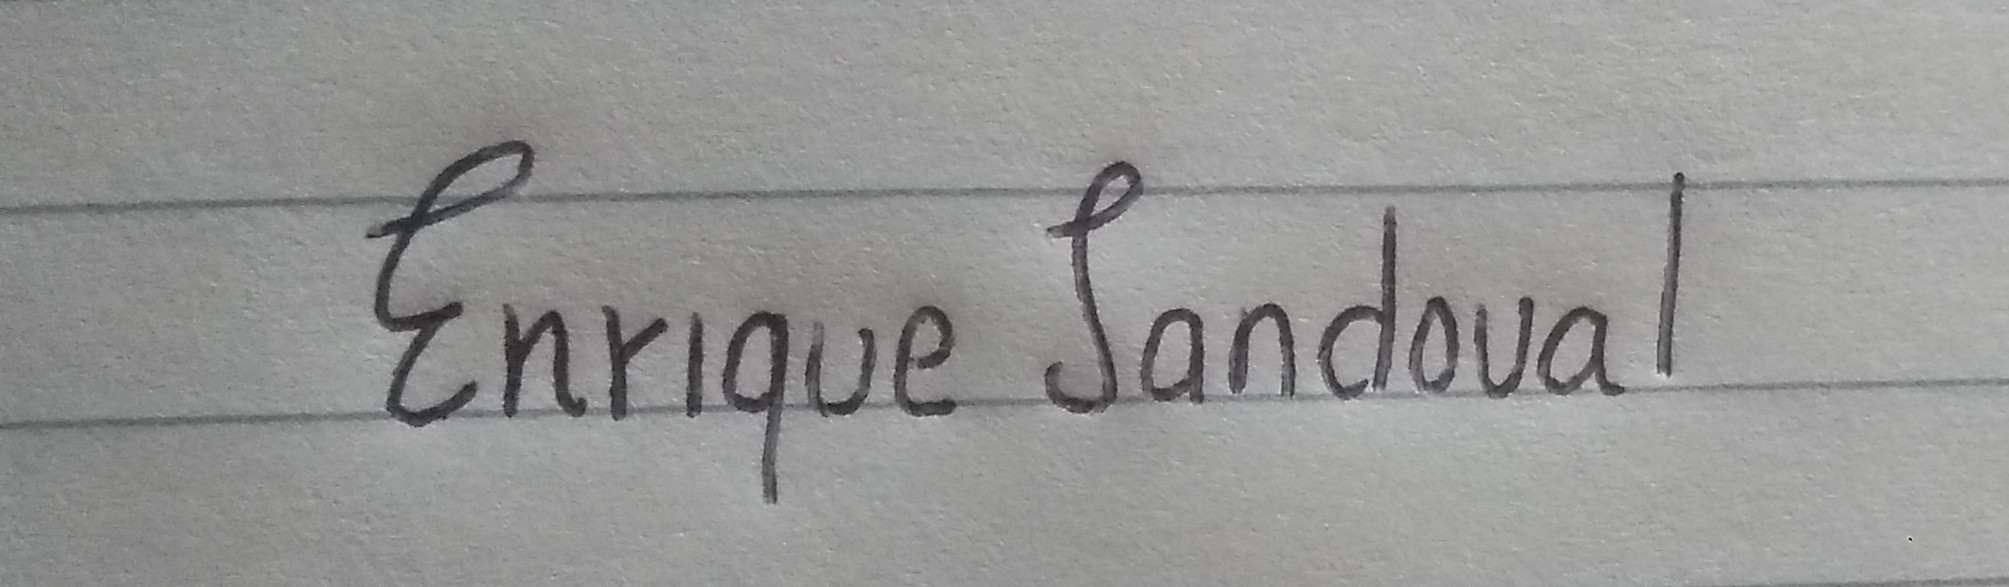 Enrique Sandoval